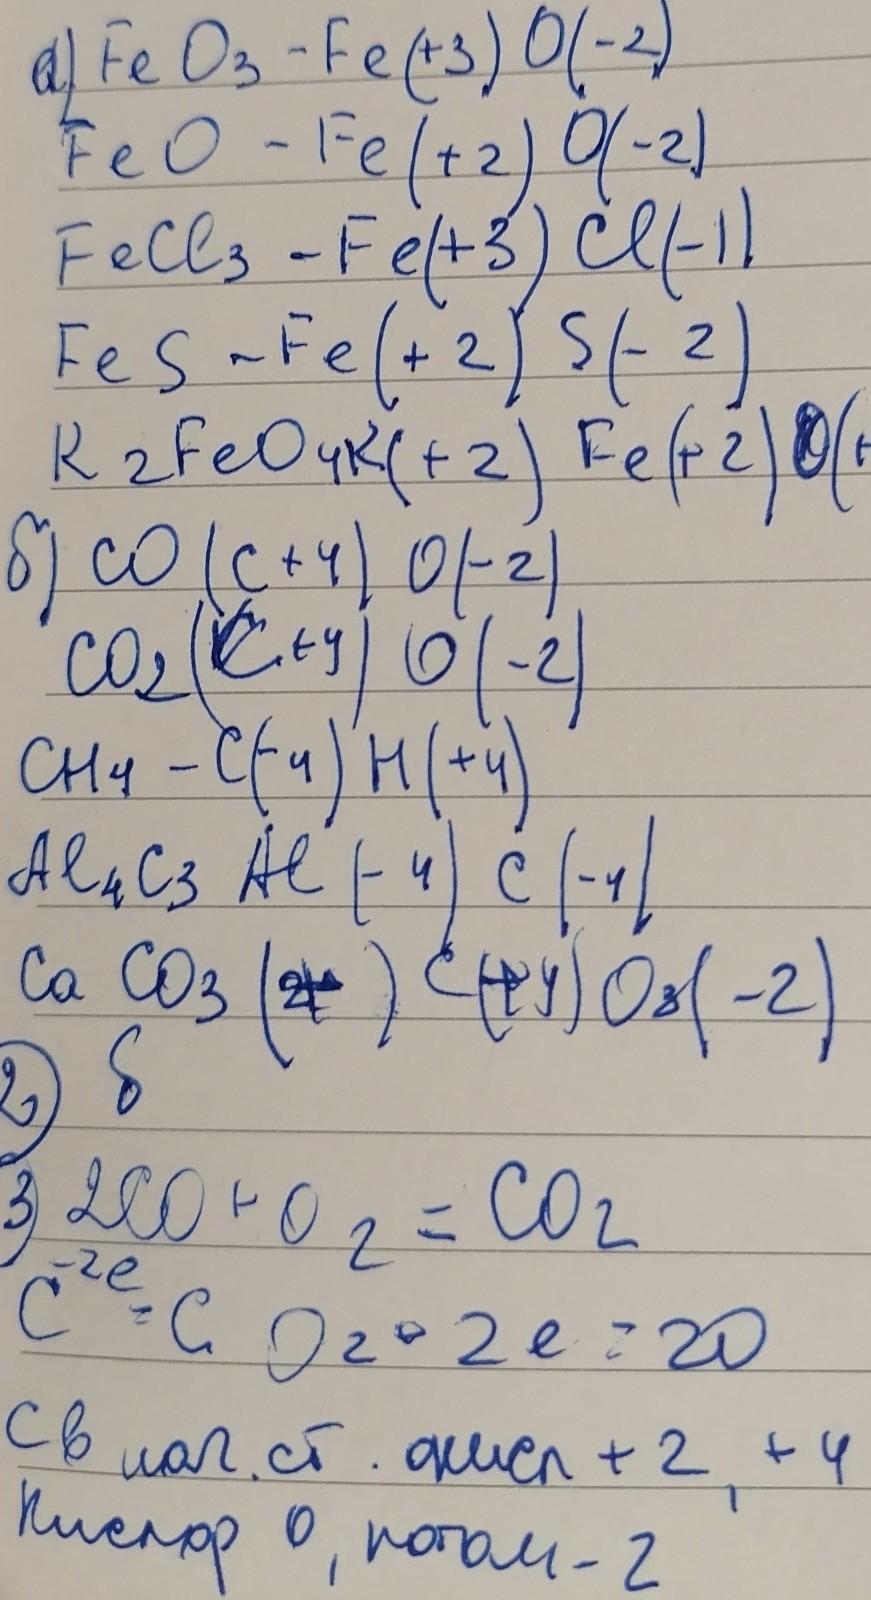 а) FeO3 - Fe(+3) O(-2)
FeO - Fe(+2) O(-2)
FeCl3 - Fe(+3) Cl(-1)
FeS - Fe(+2) S(-2)
K2FeO4 K(+2) Fe(+2) O(+
б) CO (C+4) O(-2)
CO2 (C+4) O(-2)
CH4 - C(-4) H(+4)
Al4C3 Al(-4) C(-4)
CaCO3 ( ) C(+4) O3(-2)
2) б
3) 2CO + O2 = CO2
C -2e = C O2 • 2e = 2O
С в нач. ст. окисл +2, +4
Кислор 0, потом -2